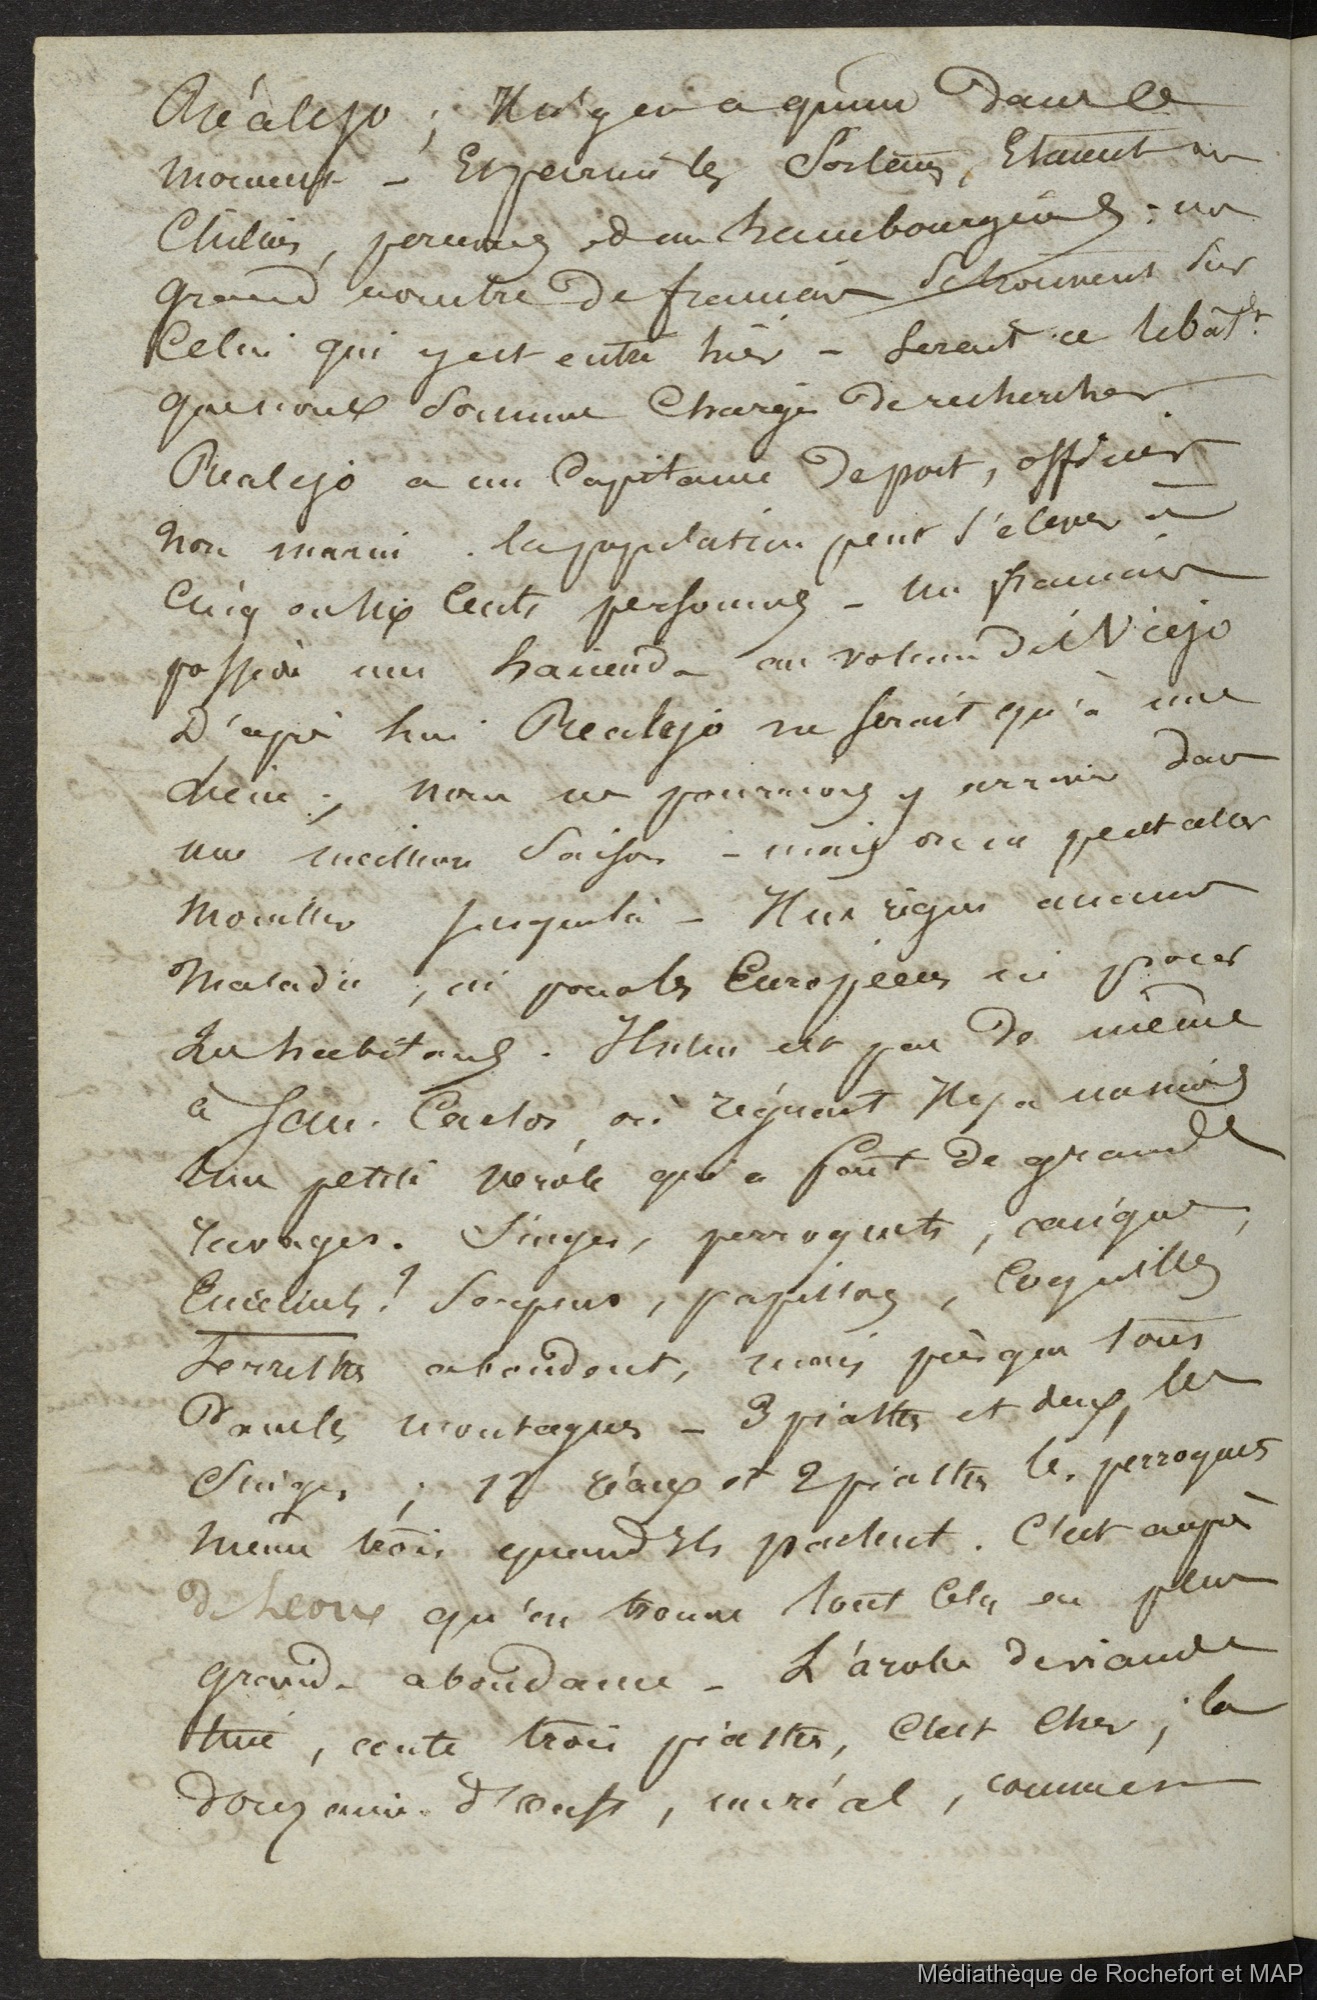 Réalejo ; Il n'y en a qu'un dans le
moment - Et parmi les Sortans, Etaient un
Chilien, peruvien et un hambourgeois ; un
grand nombre de francais se trouvent sur
Celui qui y est entré hier - Serait ce le bât.
que nous sommes Chargé de rechercher
Realejo a un Capitaine de port, officier
non marin . la population peut s'elever à
Cinq ou Six Cents personnes - Un francais
possède une hacienda au volcan del Viejo
D'après lui Realejo ne serait qu'à une
nous ne pourrions y arriver dans
une meilleure Saison - mais on ne peut aller
mouiller jusque là - Il ne règne aucune
maladie , ni pour les Européens ni pour
Les habitans . Il n'en est pas de même
à San. Carlos, où régnait Il y a un mois
Une petite vérole qui a fait de grands
ravages. Singes, perroquets ,
Serpens , papillons , Coquilles
Terrestres abondent, mais presque tous
Dans les montagnes - 3 piastres et deux, les
Singes ; 12 réaux et 2 piastres les perroquets
même trois quand Ils parlent . C'est auprès
de Leone qu'on trouve tout Cela en plus
grande abondance - L'arobe de viande
tuée , coute trois piastres, C'est Cher ; la
douzaine d'oeufs , un réal , comme
Médiathèque de Rochefort et MAP